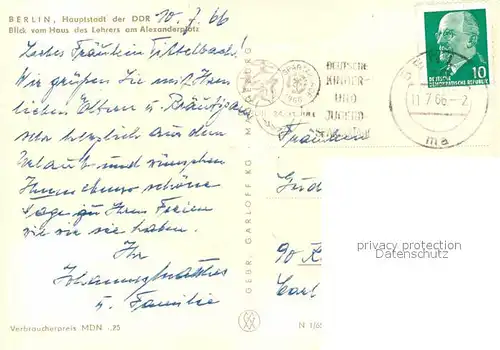 BERLIN, Hauptstadt der DDR 10.7.66
Blick vom Haus des Lehrers am Alexanderplatz
Liebes Fräulein Tittelbach!
Wir grüßen Sie mit Ihren
lieben Eltern u. Bräutigam
sehr herzlich aus dem
Urlaub und wünschen
Ihnen ebenso schöne
Tage zu Ihren Ferien
wie wir sie haben.
Ihr
u. Familie
Verbraucherpreis MDN -,25
GEBR. GARLOFF KG MAGDEBURG
1966
DEUTSCHE
KINDER-
UND
JUGEND
DEUTSCHE
DEMOKRATISCHE REPUBLIK
10
11.7.66-2
ma
Fräulein
90 K
Carl
N 1/66
privacy protection
Datenschutz